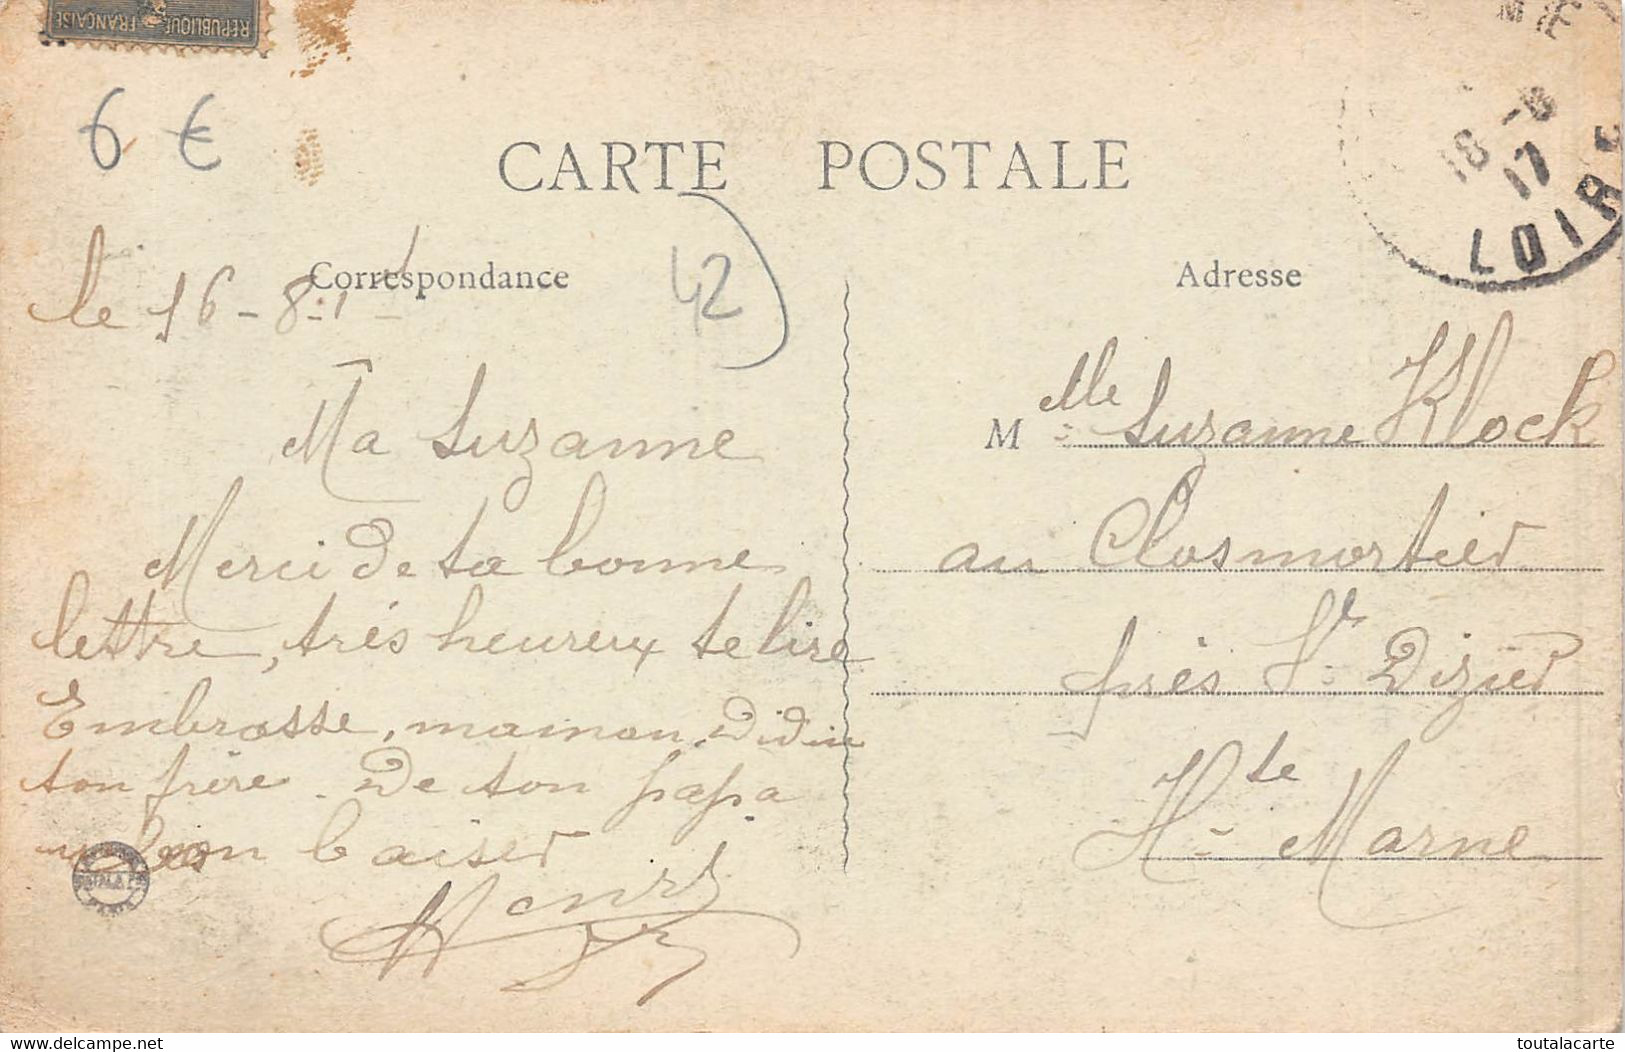 REPUBLIQUE FRANÇAISE
6 €
CARTE POSTALE
18 -8
17
LOIRE
Correspondance
42
Adresse
le 16-8-17
Ma Suzanne
Merci de ta bonne
lettre, très heureux te lire
Embrasse, maman, Didine
ton frère. De ton papa
bon baiser
Henri
M elle Suzanne Klock
au Closmortier
près St Dizier
Hte Marne
www.delcampe.net
toutalacarte